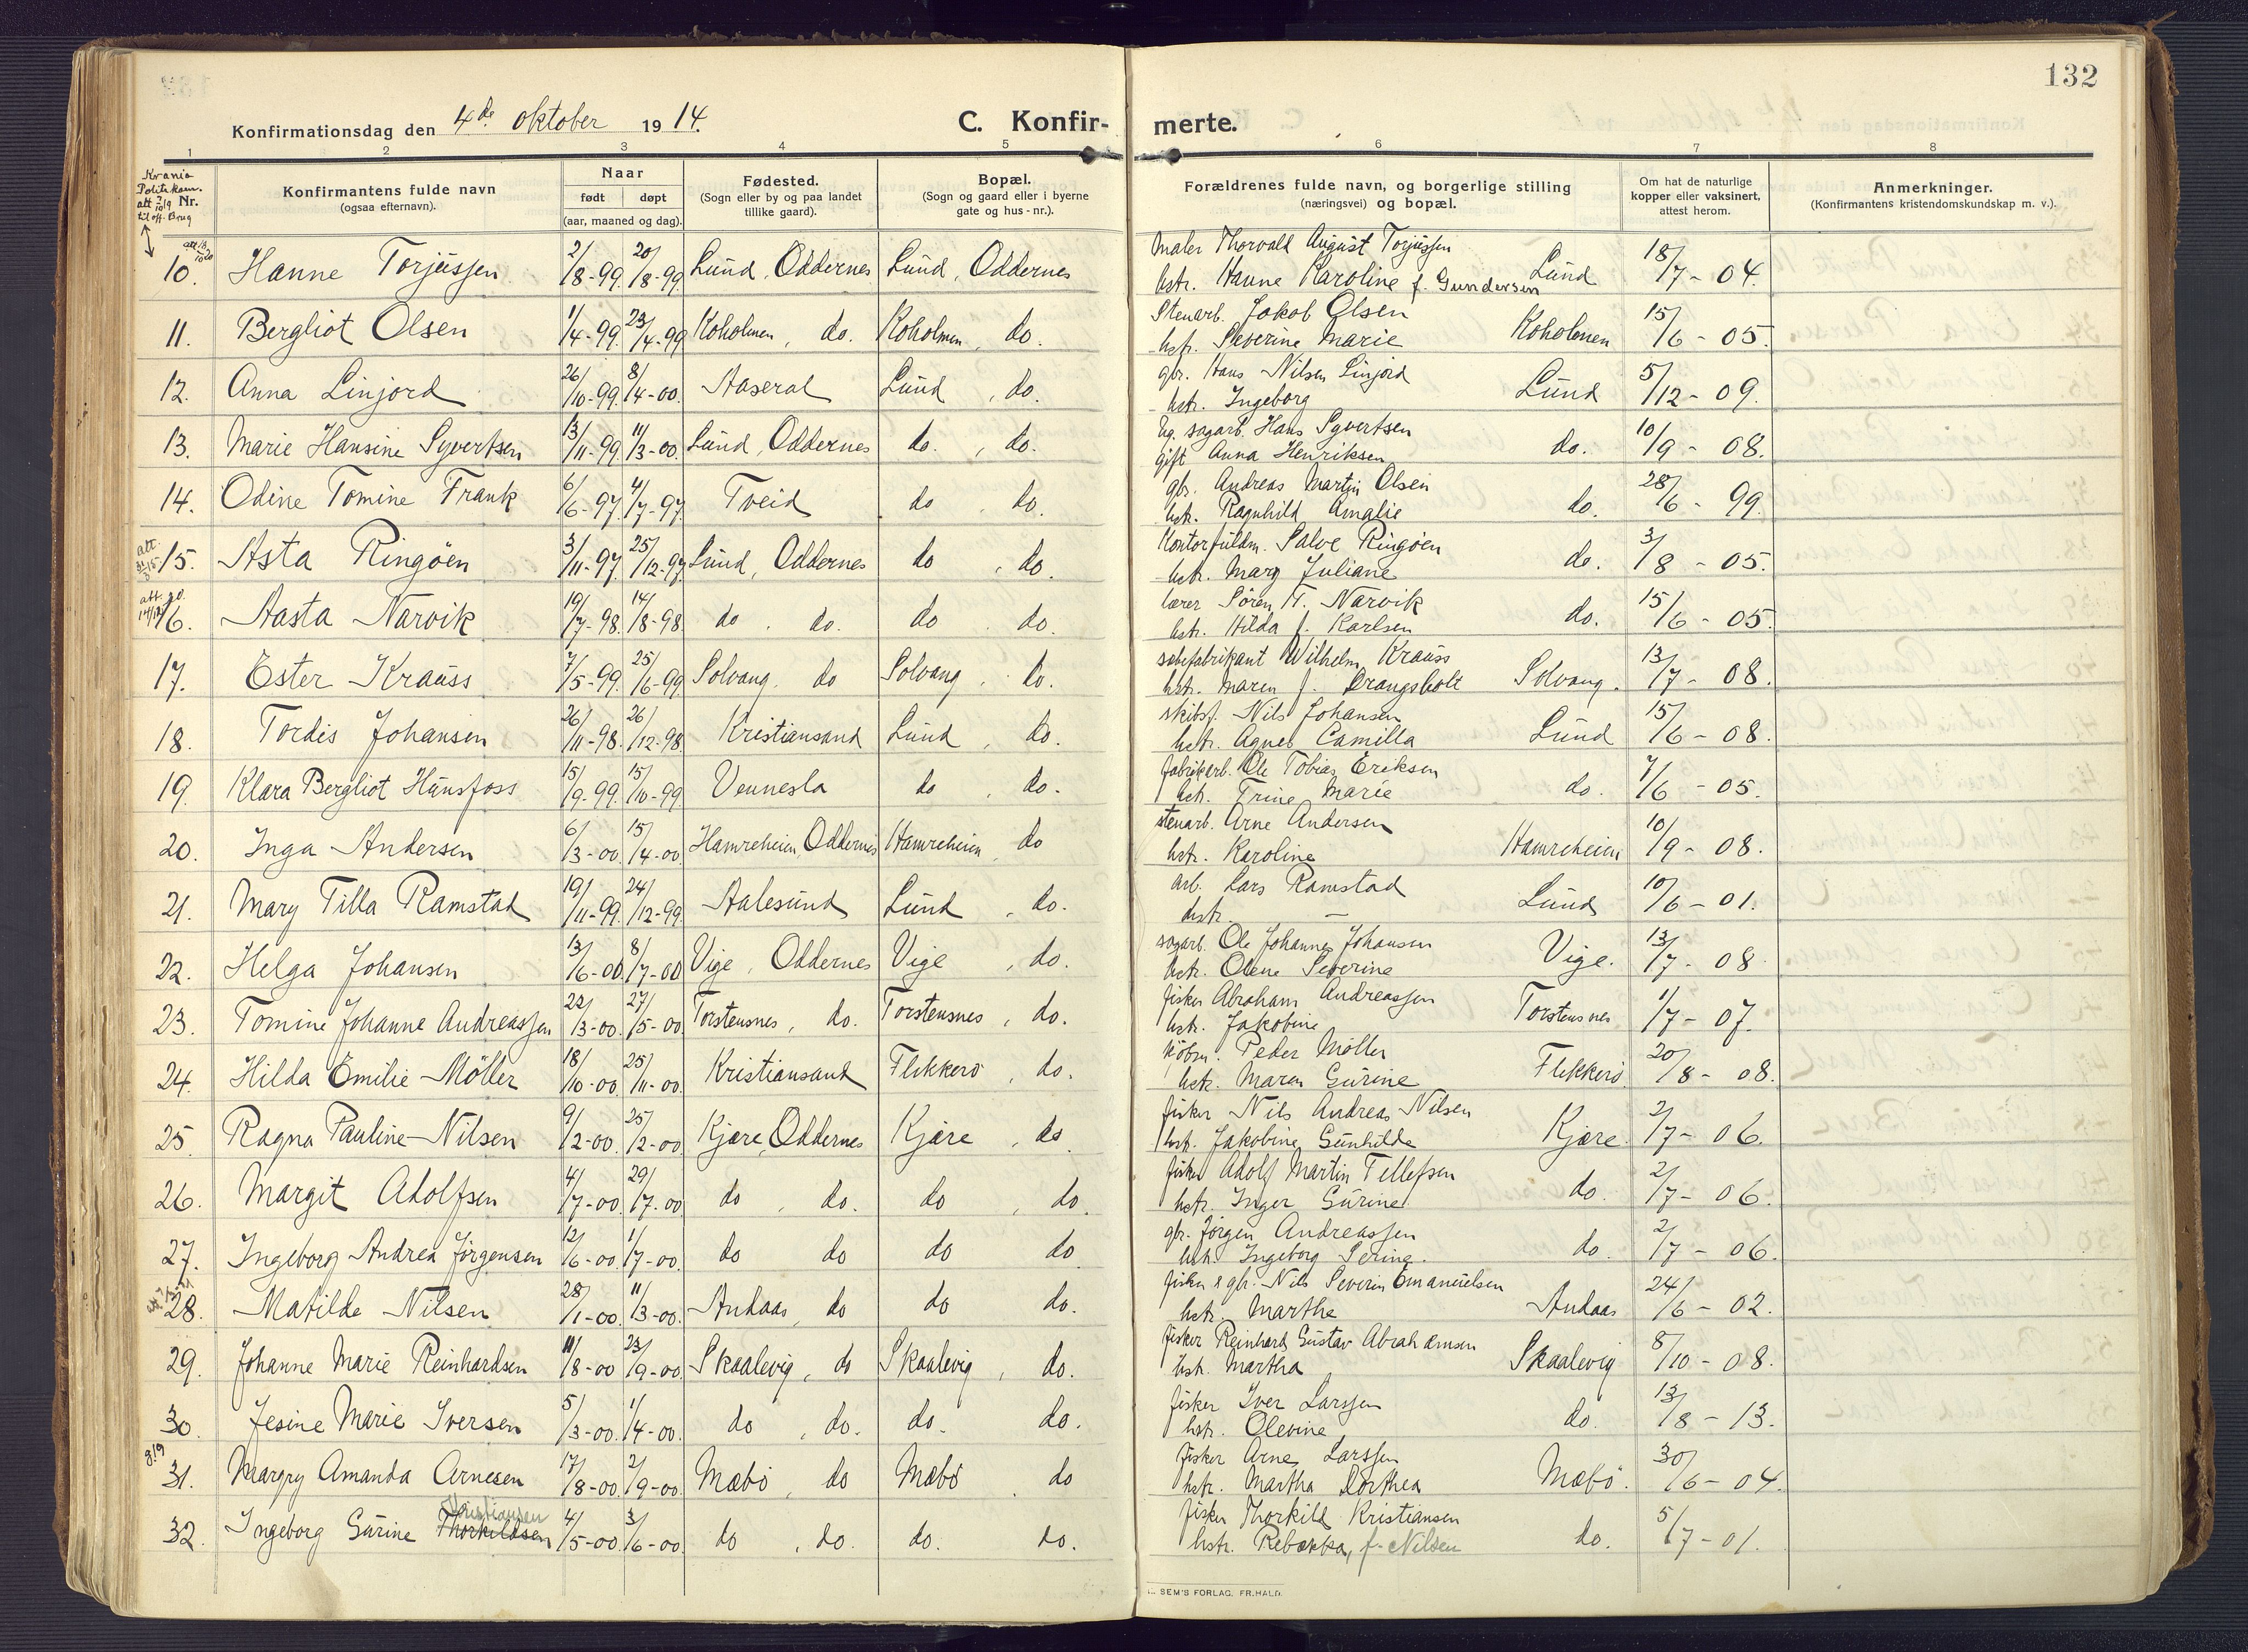 132
Konfirmationsdag den 4de oktober 1914.
C. Konfirmerte.
1 2 3 4 5 6 7 8
Krania Politikam. att 2/10 19 til off. Brug
Nr.
Konfirmantens fulde navn (ogsaa efternavn).
Naar født døpt (aar, maaned og dag).
Fødested. (Sogn eller by og paa landet tillike gaard).
Bopæl. (Sogn og gaard eller i byerne gate og hus-nr.).
Forældrenes fulde navn, og borgerlige stilling (næringsvei) og bopæl.
Om hat de naturlige kopper eller vaksinert, attest herom.
Anmerkninger. (Konfirmantens kristendomskundskap m. v.).
10. Hanne Torjussen 2/8-99. 20/8-99 Lund, Oddernes Lund, Oddernes Maler Thorvald August Torjussen hstr. Hanne Karoline f. Gundersen Lund 18/7-04.
11. Bergliot Olsen 1/4-99. 23/4-99 Koholmen, do. Koholmen, do. Stenarb. Jakob Olsen hstr. Severine Marie Koholmen 15/6-05.
12. Anna Linjord 26/10-99. 8/4-00. Aaseral Lund, do. gbr. Hans Nilsen Linjord hstr. Ingeborg Lund 5/12-09.
13. Marie Hansine Syvertsen 13/11-99. 11/3-00. Lund, Oddernes do., do. Ug. sagarb. Hans Syvertsen gift Anna Henriksen do. 10/9-08.
14. Odine Tomine Frank 6/6-97. 4/7-97. Tveid do do. gbr. Andreas Martin Olsen hstr. Ragnhild Amalie do. 28/6-99.
att. 15. Asta Ringöen 3/11-97. 25/12-97 Lund, Oddernes do, do. Kontorfuldm. Salve Ringöen hstr. Mary Juliane do. 3/8-05.
att. 16. Aasta Narvik 19/7-98. 14/8-98 do. do. do. do. lærer Sören T. Narvik hstr. Hilda f. Karlsen do. 15/6-05.
17. Ester Krauss 7/5-99. 25/6-99 Solvang, do Solvang, do. sæbefabrikant Wilhelm Krauss hstr. Maren f. Drangsholt Solvang. 13/7-08.
18. Tordis Johansen 26/11-98. 26/12-98. Kristiansand Lund, do. skibsf. Nils Johansen hstr. Agnes Camilla Lund 15/6-08.
19. Klara Bergliot Hunsfoss 15/9-99. 15/10-99 Vennesla do, do. fabrikarb. Ole Tobias Eriksen hstr. Trine Marie do. 7/6-05.
20. Inga Andersen 6/3-00. 15/4-00. Hamreheien, Oddernes Hamreheien, do stenarb. Arne Andersen hstr. Karoline Hamreheien 10/9-08.
21. Mary Tilla Ramstad 19/11-99. 24/12-99. Aalesund Lund, do. arb. Lars Ramstad hstr. — Lund 10/6-01.
22. Helga Johansen 13/6-00. 8/7-00 Vige, Oddernes Vige, do. sagarb. Ole Johannes Johansen hstr. Olene Severine Vige. 13/7-08
23. Tomine Johanne Andreassen 22/3-00. 27/5-00. Torstensnes, do. Torstensnes, do. fisker Abraham Andreassen hstr. Jakobine Torstensnes 1/7-07.
24. Hilda Emilie Möller 18/10-00. 25/11-00. Kristiansand Flekkerö, do. kjöbm. Peder Möller hstr. Maren Gurine Flekkerö. 20/8-08.
25. Ragna Pauline Nilsen 9/2-00. 25/2-00. Kjære, Oddernes Kjære, do fisker Nils Andreas Nilsen hstr. Jakobine Gunhilde Kjære. 2/7-06.
26. Margit Adolfsen 4/7-00. 29/7-00 do, do. do, do. fisker Adolf Martin Tellefsen hstr. Inger Gurine do. 2/7-06.
27. Ingeborg Andrea Jörgensen 12/6-00. 1/7-00. do do do do gbr. Jörgen Andreassen hstr. Ingeborg Serine. do. 2/7-06.
28. Matilde Nilsen 28/1-00. 11/3-00. Andaas, do do do. fisker & gbr. Nils Severin Emanuelsen hstr. Marthe Andaas 24/6-02.
29. Johanne Marie Reinhardsen 11/8-00 23/9-00. Skaalevig, do Skaalevig, do. fisker Reinhard Gustav Abrahamsen hstr. Martha Skaalevig 8/10-08.
30. Jesine Marie Iversen 5/3-00. 1/4-00. do, do. do. do. fisker Iver Larssen hstr. Olevine do. 13/8-13.
31. Margry Amanda Arnesen 17/8-00. 2/9-00. Mæbö, do Mæbö. do fisker Arne Larssen hstr. Martha Dorthea Mæbö. 30/6-04.
32. Ingeborg Gurine Thorkildsen Kristiansen 4/5-00. 3/6-00. do, do. do. do. fisker Thorkild Kristiansen hstr. Rebekka, f. Nilsen do. 5/7-01.
SEM'S FORLAG, FR.HALD.